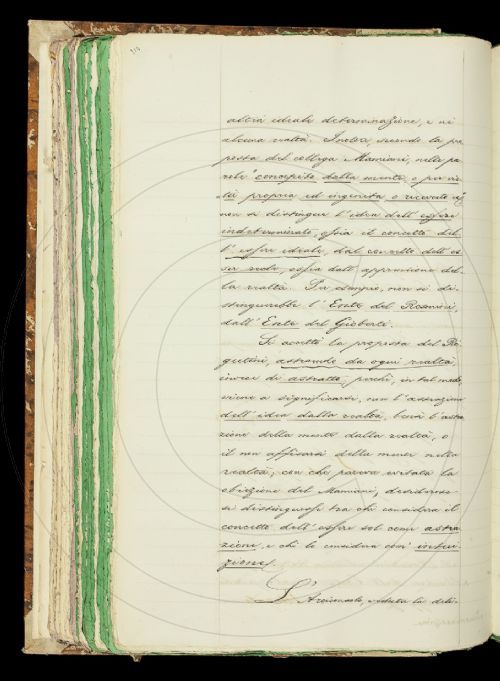 alcuna ideale determinazione, e ni
alcuna realtà. Inoltre, secondo la pro
posta del collega Mamiani, nelle pa
role "concepito dalla mente, o per vir
tù propria ed ingenita o ricevuta"
non si distingue l'idea dell'essere
indeterminato, ossia il concetto del
l'essere ideale, dal concetto dell'es
ser reale, ossia dall'apprensione del
la realtà. Per esempio, non si di
stinguerebbe l'Ente del Rosmini,
dall'Ente del Gioberti.
Si accetti la proposta del
astraendo da ogni realtà,
invece di astratto, perchè, in tal modo,
viene a significarsi, non l'astrazione
dell'idea dalla realtà, bensì l'astra
zione della mente dalla realtà, o
il non affisarsi della mente nella
realtà; con che pareva evitata la
obiezione del Mamiani, desideroso
si distinguesse tra chi considera il
concetto dell'essere sol come astra
zione, e chi lo considera com'intui
zione.
L'Arciconsolo, veduta la deli-